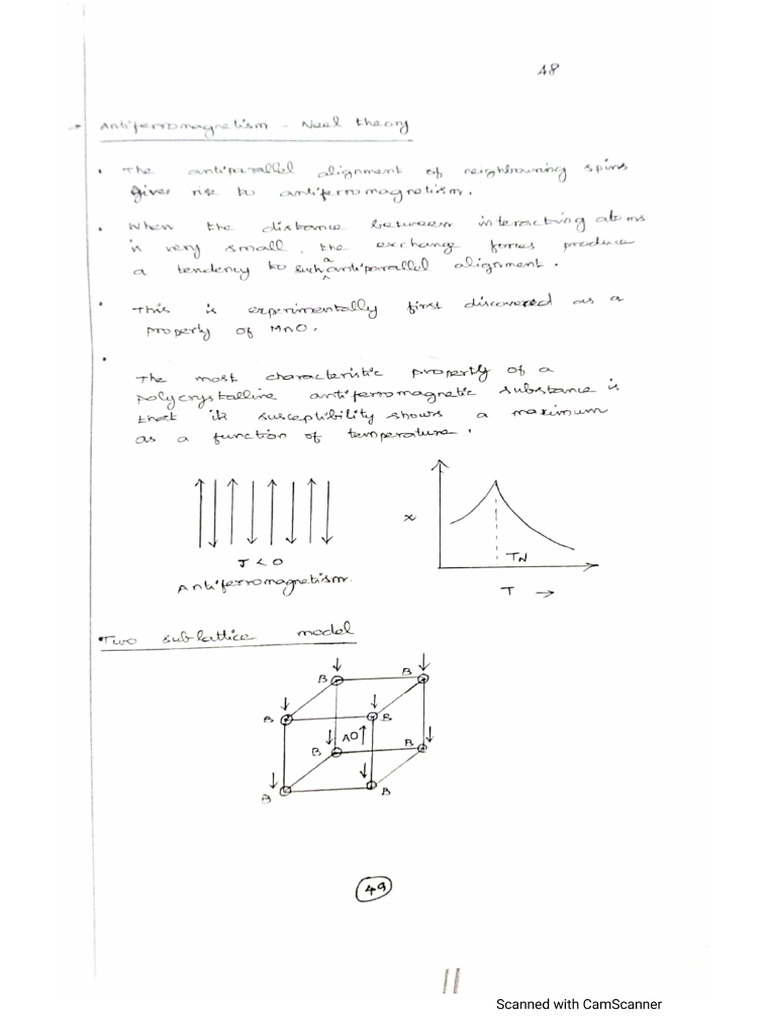 48
→ Antiferromagnetism - Neel theory
• The antiparallel alignment of neighbouring spins
gives rise to antiferromagnetism.
• When the distance between interacting atoms
is very small, the exchange forces produce
a tendency to such a antiparallel alignment.
• This is experimentally first discovered as a
property of MnO.
•
The most characteristic property of a
polycrystalline antiferromagnetic substance is
that its susceptibility shows a maximum
as a function of temperature.
J < 0
Antiferromagnetism.
x
TN
T →
• Two sub-lattice model
B
B
B
B
B
AO
B
B
B
49
11
Scanned with CamScanner